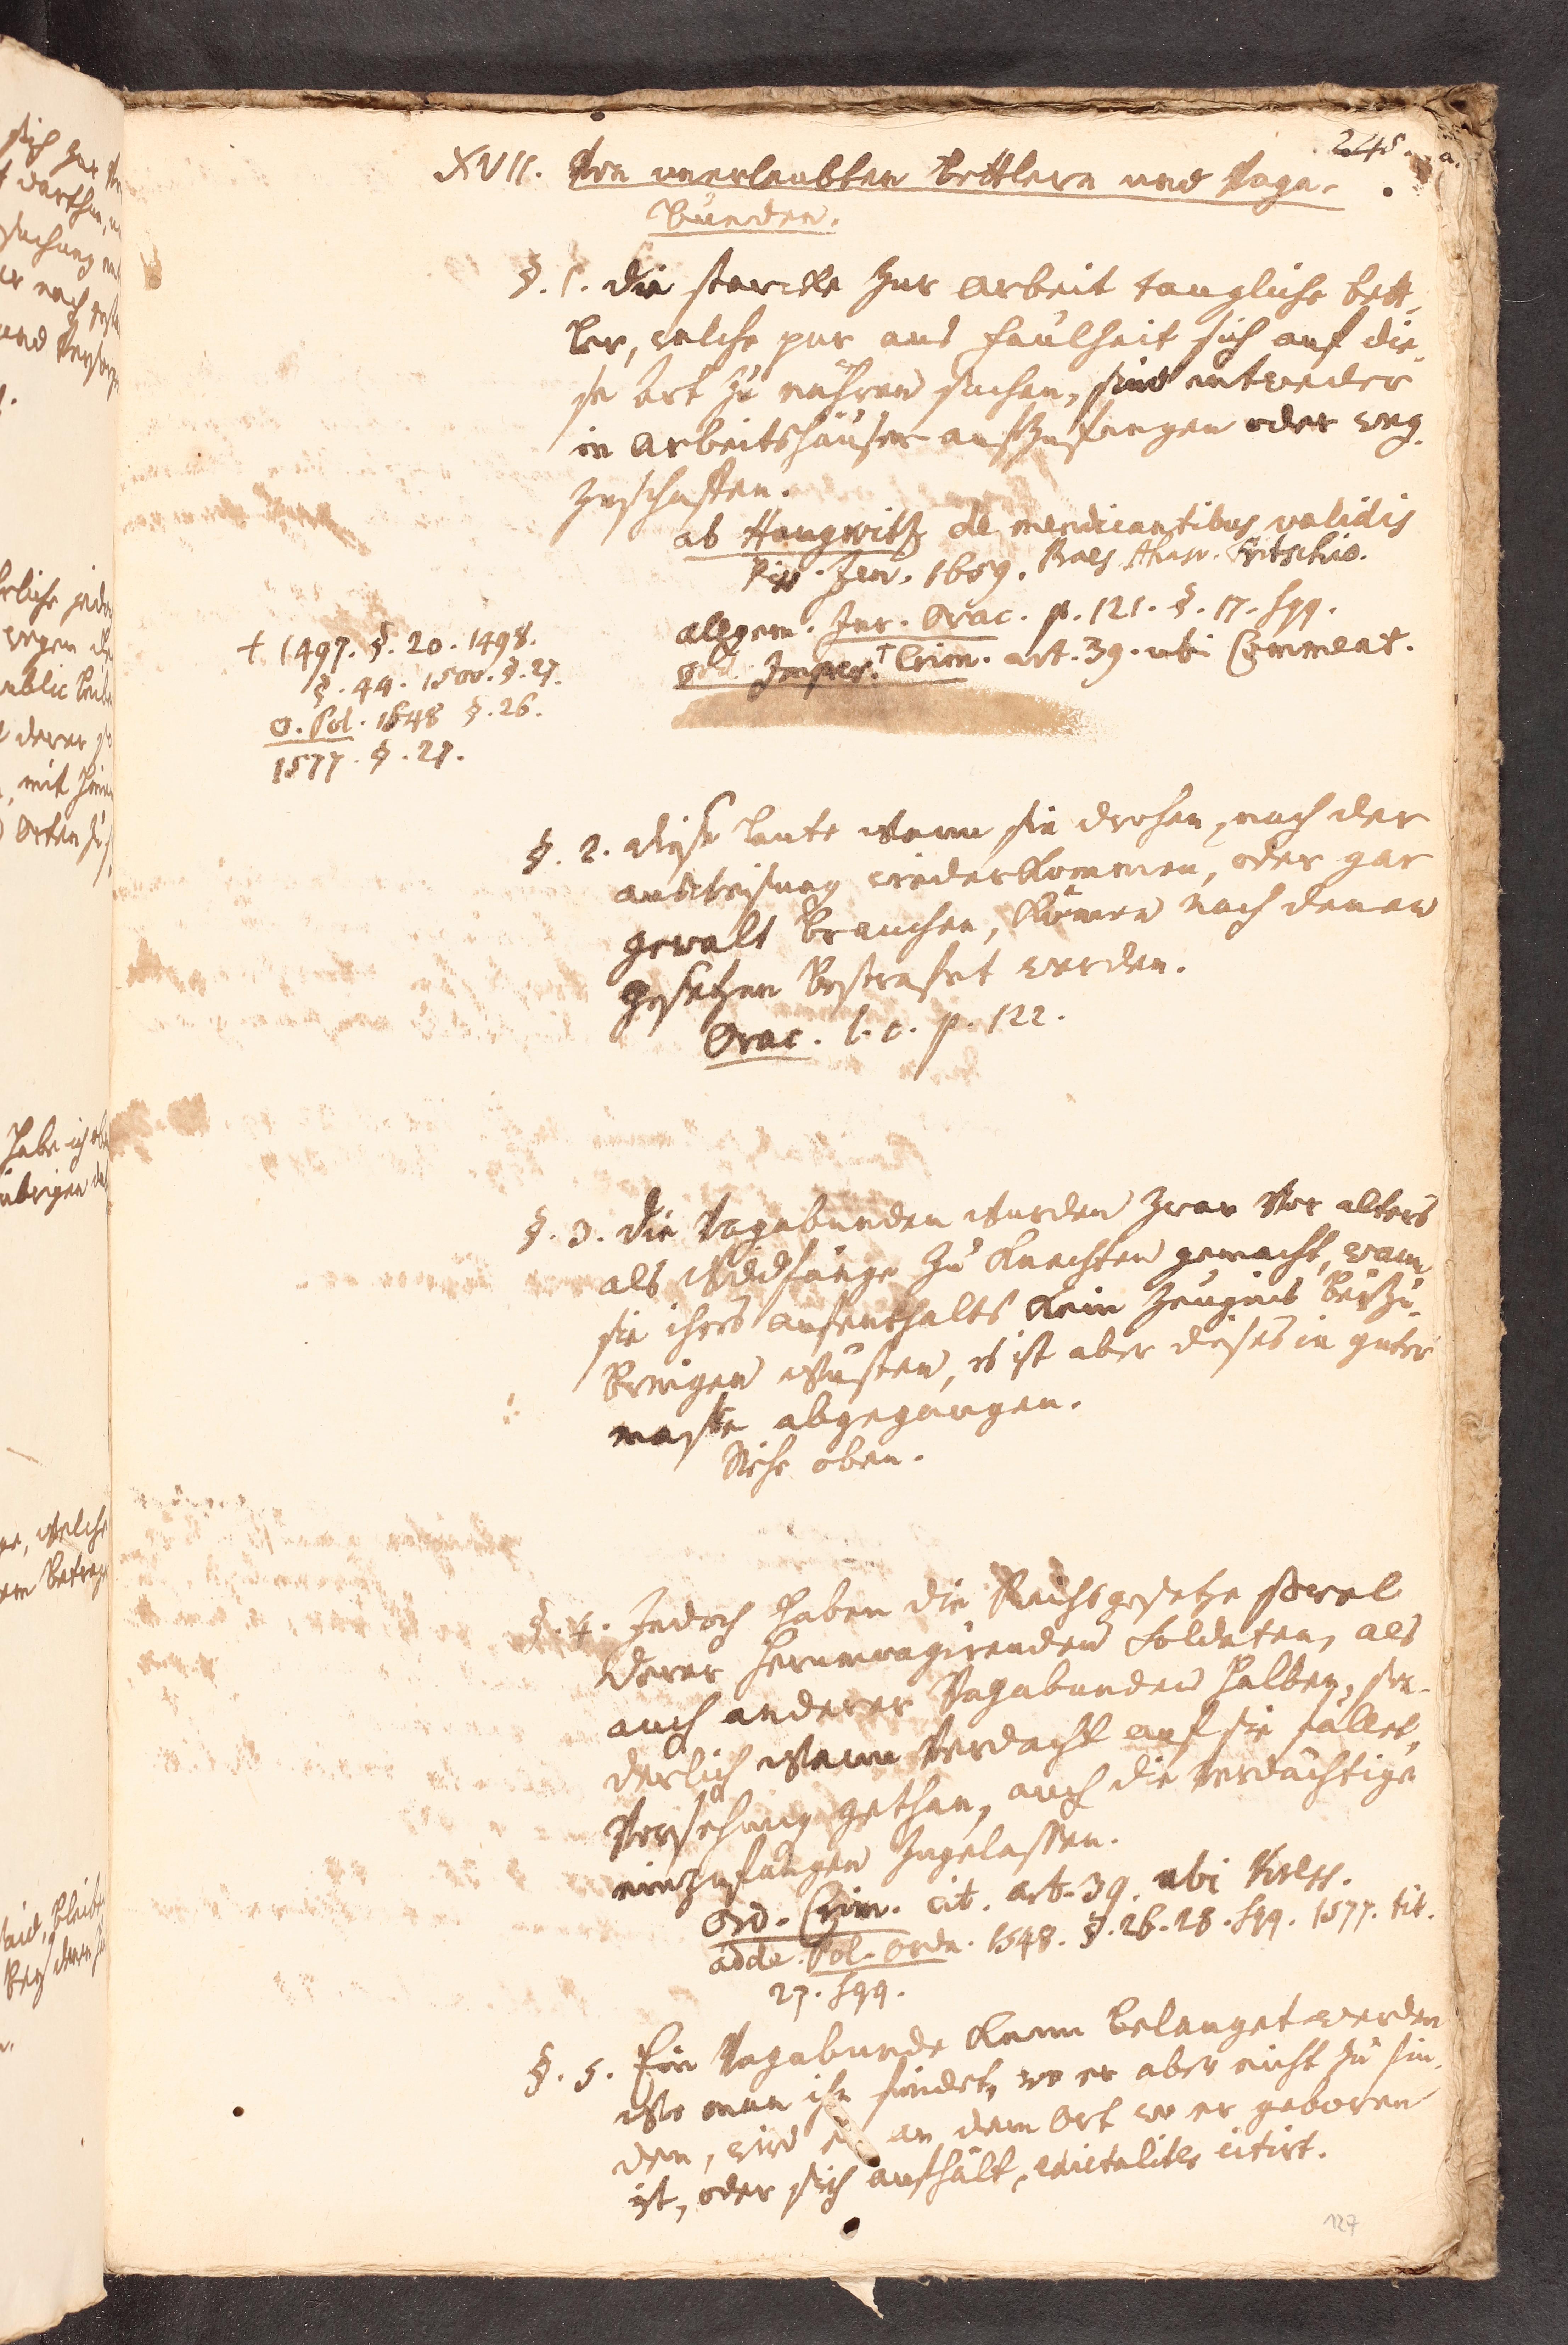 245. a.
XVII. Von unerlaubten Bettlern und Vaga-
bunden.
§. 1. Die starcke zur Arbeit taugliche Bett-
ler, welche pur aus Faulheit sich auf die-
se Art zu nähren suchen, sind entweder
in Arbeitshäuser aufzufangen oder weg-
zuschaffen.
ab Haugwitz de mendicantibus validis
Jen. 1659. Praes. Ahasv. Fritschio.
allgem. Jur. Orac. p. 121. §. 17. sqq.
Ord. Imper. † Crim. art. 39. ubi Comment.
† 1497. §. 20. 1498.
§. 44. 1500. §. 27.
O. Pol. 1548 §. 26.
1577. §. 27.
§. 2. Diese Leute wenn sie drohen, nach der
ausweisung wiederkommen, oder gar
gewalt brauchen, können nach denen
gesetzen bestrafet werden.
Orac. l. c. p. 122.
§. 3. Die Vagabunden wurden zwar vor alters
als Wildfänge zu Knechten gemacht, wann
sie ihres aufenthalts kein Zeugnis beyzu-
bringen wusten, es ist aber dieses in guter
masse abgegangen.
Siehe oben.
§. 4. Jedoch haben die Reichsgesetze sowol
derer herumvagirenden Soldaten, als
auch anderer Vagabunden halben, son-
derlich wenn Verdacht auf sie fället,
Versehung gethan, auch die Verdächtige
einzufangen zugelassen.
Ord. Crim. cit. art. 39. ubi Kress.
adde. Pol. Ordn. 1548. §. 26. 28. sqq. 1577. tit.
27. sqq.
§. 5. Ein Vagabunde kann belanget werden
wo man ihn findet, wo er aber nicht zu fin-
den, wird er an dem Ort wo er geboren
ist, oder sich aufhält, edictaliter citirt.
127